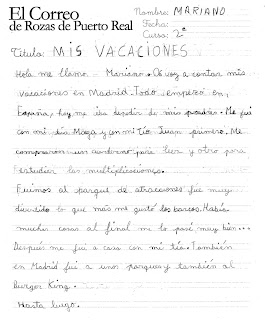 El Correo
de Rozas de Puerto Real
Nombre: MARIANO
Fecha:
Curso: 2º
Título: MIS VACACIONES
Hola me llamo Mariano. Os voy a contar mis
vacaciones en Madrid. Todo empezó en,
España, hoy me iba de mis padres. Me fui
con mi tía Maya y con mi tío Juan primero. Me
compraron un cuaderno para leer y otro para
estudiar las multiplicaciones.
Fuimos al parque de atracciones fue muy
divertido lo que más me gustó los barcos. Había
muchas cosas al final me lo pasé muy bien...
Después me fui a casa con mi tía. También
en Madrid fui a unos parques y también al
Burger King.
Hasta luego.